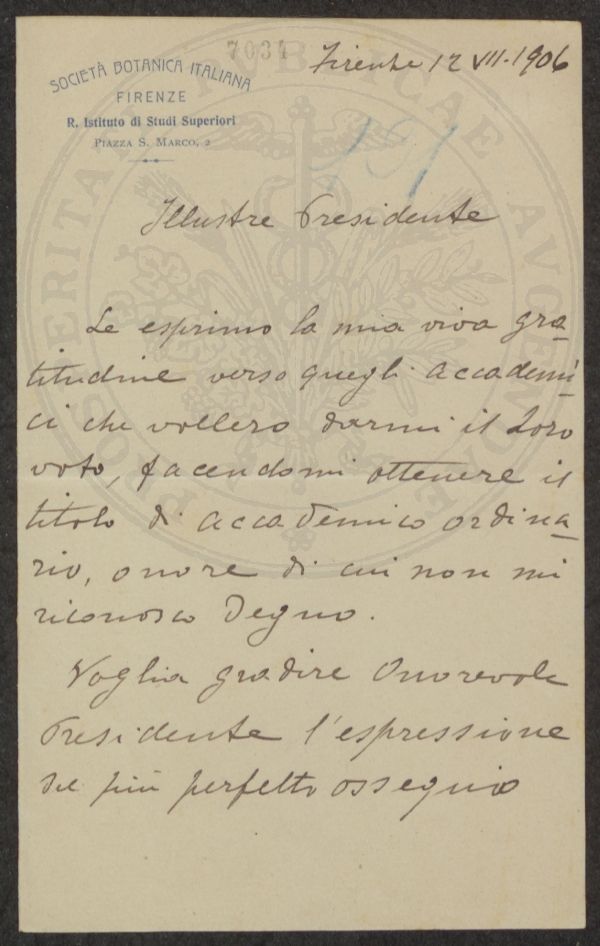 7034
Firenze 12 VII. 1906
SOCIETÀ BOTANICA ITALIANA
FIRENZE
R. Istituto di Studi Superiori
PIAZZA S. MARCO, 2
Illustre Presidente
Le esprimo la mia viva gra-
titudine verso quegli accademi-
ci che vollero darmi il Loro
voto, facendomi ottenere il
titolo di accademico ordina-
rio, onore di cui non mi
riconosco degno.
Voglia gradire Onorevole
Presidente l'espressione
del più perfetto ossequio
PROSPERITATI PUBLICAE AUGENDAE